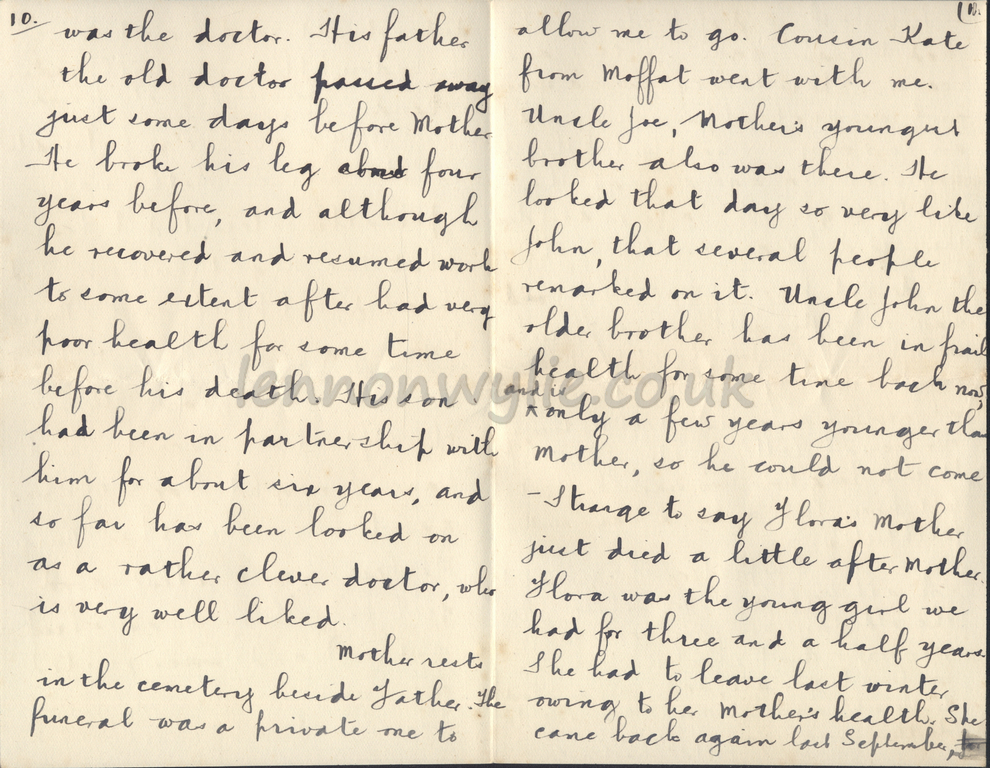 10.
was the doctor. His father
the old doctor passed away
just some days before Mother
He broke his leg about four
years before, and although
he recovered and resumed work
to some extent after had very
poor health for some time
before his death. His son
had been in partnership with
him for about six years, and
so far has been looked on
as a rather clever doctor, who
is very well liked.
Mother rests
in the cemetery beside Father. The
funeral was a private one to
allow me to go. Cousin Kate
from Moffat went with me.
Uncle Joe, Mother's youngest
brother also was there. He
looked that day so very like
John, that several people
remarked on it. Uncle John the
older brother has been in frail
health for some time back now,
and is
only a few years younger than
Mother, so he could not come
-Strange to say Flora's Mother
just died a little after Mother.
Flora was the young girl we
had for three and a half years.
She had to leave last winter
owing to her Mother's health. She
came back again last September,
lennonwylie.co.uk